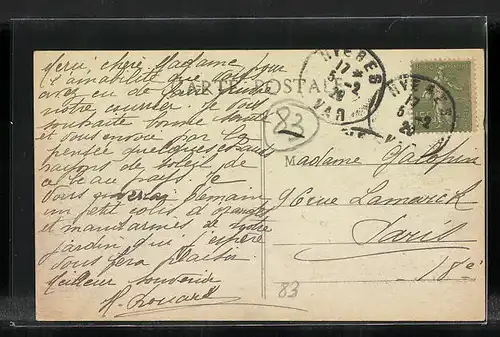 Merci chère Madame pour
l'amabilité que vous
avez eu de
notre courrier. Je vous
souhaite bonne santé
et vous envoie par la
pensée quelques chauds
rayons de soleil de
ce beau pays. Je
vous enverrai demain
un petit colis d'oranges
et mandarines de notre
jardin qui j'espère
vous fera plaisir
Meilleur souvenir
H. Rouard
CARTE POSTALE
HYERES
17 *
5-2
VAR
HYERES
17
5-2
83
Madame Galopin
96 rue Lamarck
Paris
18e
83